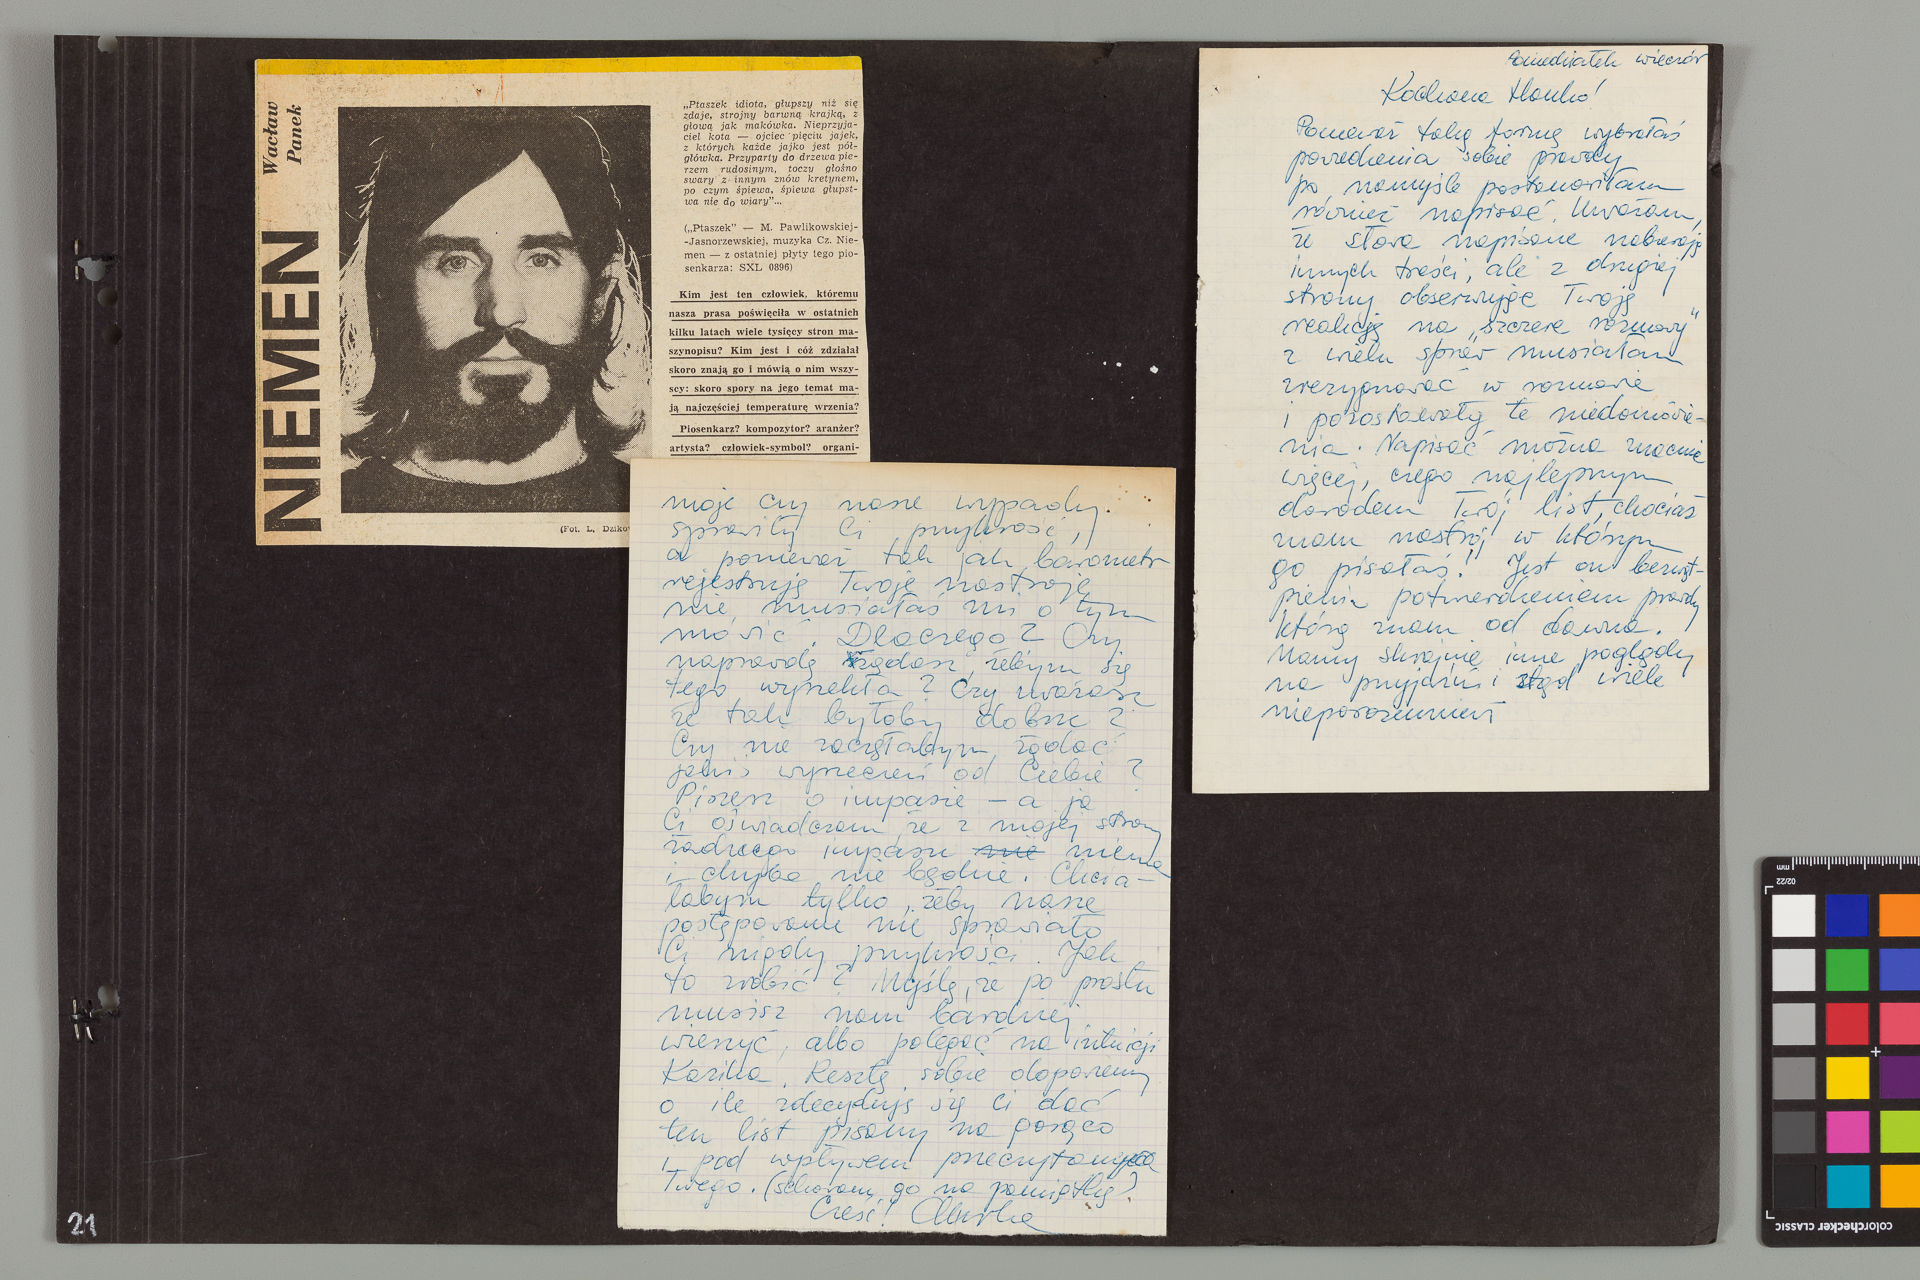 Wacław
Panek
NIEMEN
„Ptaszek idiota, głupszy niż się
zdaje, strojny barwną krajką, z
głową jak makówka. Nieprzyja-
ciel kota — ojciec pięciu jajek,
z których każde jajko jest pół-
główka. Przyparty do drzewa pie-
rzem rudosinym, toczy głośno
swary z innym znów kretynem,
po czym śpiewa, śpiewa głupst-
wa nie do wiary"...
(„Ptaszek" — M. Pawlikowskiej-
-Jasnorzewskiej, muzyka Cz. Nie-
men — z ostatniej płyty tego pio-
senkarza: SXL 0896)
Kim jest ten człowiek, któremu
nasza prasa poświęciła w ostatnich
kilku latach wiele tysięcy stron ma-
szynopisu? Kim jest i cóż zdziałał
skoro znają go i mówią o nim wszy-
scy: skoro spory na jego temat ma-
ją najczęściej temperaturę wrzenia?
Piosenkarz? kompozytor? aranżer?
artysta? człowiek-symbol? organi-
(Fot. L. Dziko
Poniedziałek wieczór
Kochana Hanko!
Ponieważ taką formę wybrałaś
powiedzenia sobie prawdy
po namyśle postanowiłam
również napisać. Uważam,
że słowa napisane nabierają
innych treści, ale z drugiej
strony obserwując Twoją
reakcję na „szczere rozmowy"
z wielu spraw musiałam
zrezygnować w rozmowie
i pozostawały te niedomówie-
nia. Napisać można znacznie
więcej, czego najlepszym
dowodem Twój list, chociaż
znam nastrój w którym
go pisałaś! Jest on bezwąt-
pienia potwierdzeniem prawdy
którą znam od dawna.
Mamy skrajnie inne poglądy
na przyjaźń i stąd wiele
nieporozumień
moje czy nasze wypady
sprawiły Ci przykrość,
a ponieważ tak jak barometr
rejestruję Twoje nastroje
nie musiałaś mi o tym
mówić. Dlaczego? Czy
naprawdę żądasz, żebym się
tego wyrzekła? Czy uważasz
że tak byłoby dobrze?
Czy nie zaczęłabym żądać
jakiś wyrzeczeń od Ciebie?
Piszesz o impasie – a ja
Ci oświadczam, że z mojej strony
żadnego impasu nie niema
i chyba nie będzie. Chcia-
łabym tylko, żeby nasze
postępowanie nie sprawiało
Ci nigdy przykrości. Jak
to zrobić? Myślę, że po prostu
musisz nam bardziej
wierzyć, albo polegać na intuicji
Kazika. Resztę sobie dopowiemy
o ile zdecyduję się Ci dać
ten list pisany na gorąco
i pod wpływem przeczytanego
Twego. (schowany go na pamiątkę?
Cześć!
21
mm
02/22
colorchecker CLASSIC